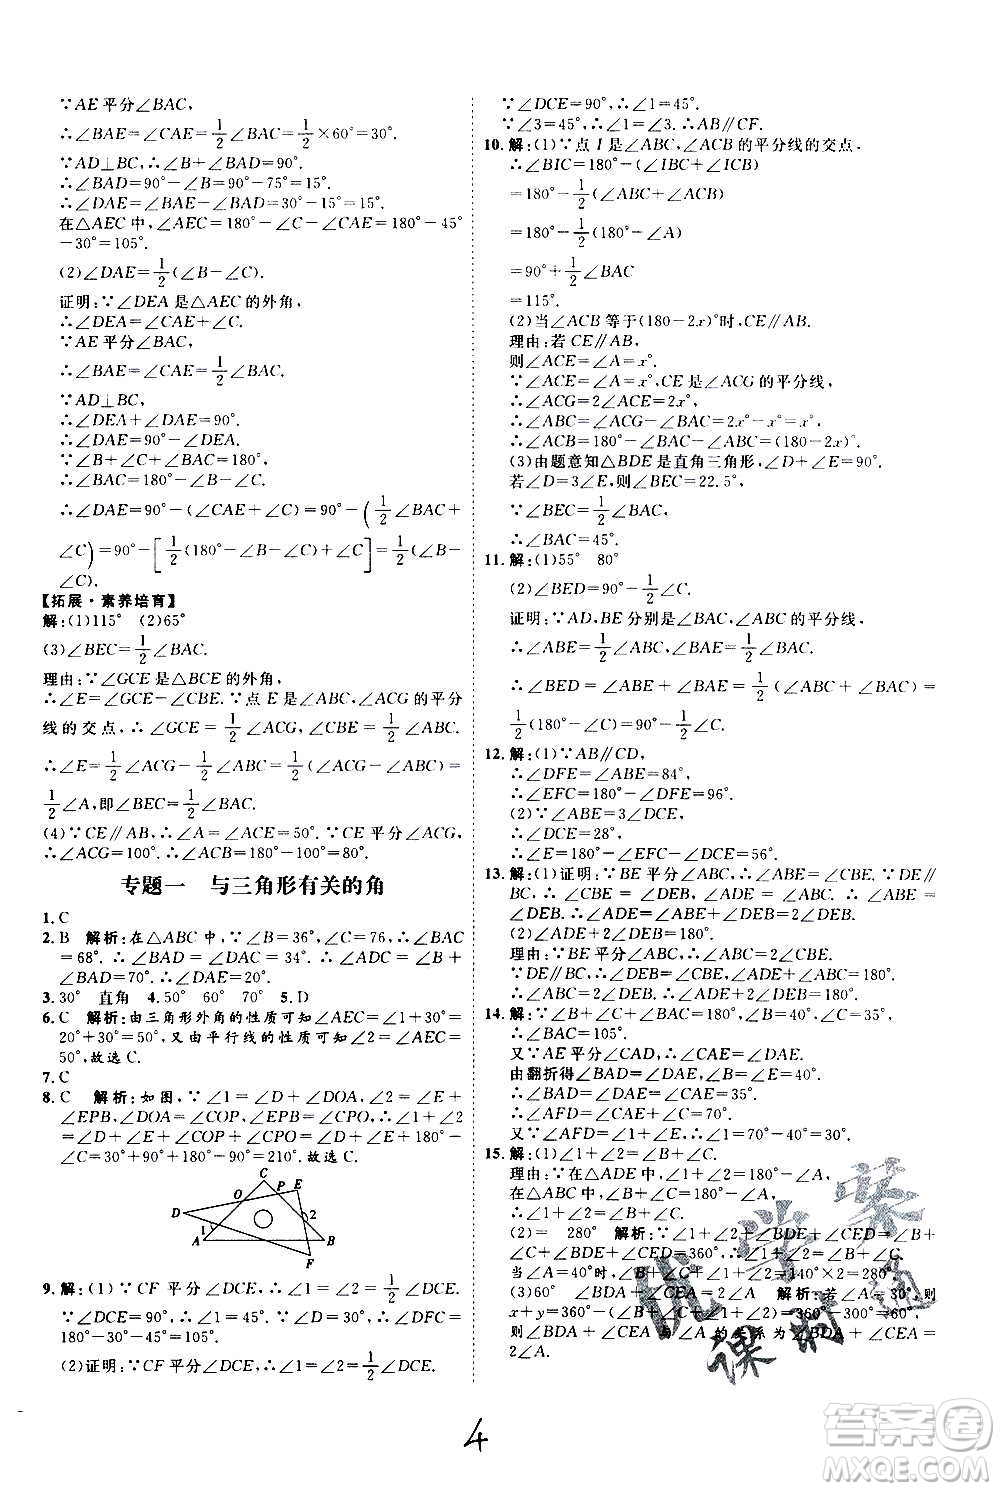 ∵AE平分∠BAC,
∴∠BAE=∠CAE=1/2∠BAC=1/2×60°=30°.
∵AD⊥BC,∴∠BAD+∠B=90°.
∴∠BAD=90°-∠B=90°-75°=15°.
∴∠DAE=∠BAE-∠BAD=30°-15°=15°.
在△AEC中,∠AEC=180°-∠C-∠CAE=180°-45°
-30°=105°.
(2)∠DAE=1/2(∠B-∠C).
证明:∵∠DEA是△AEC的外角,
∴∠DEA=∠CAE+∠C.
∵AE平分∠BAC,
∴∠BAE=∠CAE=1/2∠BAC.
∵AD⊥BC,
∴∠DEA+∠DAE=90°.
∴∠DAE=90°-∠DEA.
∵∠B+∠C+∠BAC=180°,
∴∠BAC=180°-∠B-∠C.
∴∠DAE=90°-(∠CAE+∠C)=90°-(1/2∠BAC+
∠C)=90°-[1/2(180°-∠B-∠C)+∠C]=1/2(∠B-
∠C).
【拓展·素养培育】
解:(1)115° (2)65°
(3)∠BEC=1/2∠BAC.
理由:∵∠GCE是△BCE的外角,
∴∠E=∠GCE-∠CBE.∵点E是∠ABC,∠ACG的平分
线的交点,∴∠GCE=1/2∠ACG,∠CBE=1/2∠ABC.
∴∠E=1/2∠ACG-1/2∠ABC=1/2(∠ACG-∠ABC)=
1/2∠A,即∠BEC=1/2∠BAC.
(4)∵CE∥AB,∴∠A=∠ACE=50°.∵CE平分∠ACG,
∴∠ACG=100°.∴∠ACB=180°-100°=80°.
专题一 与三角形有关的角
1.C
2.B 解析:在△ABC中,∵∠B=36°,∠C=76,∴∠BAC=
68°.∴∠BAD=∠DAC=34°.∴∠ADC=∠B+
∠BAD=70°.∴∠DAE=20°.
3.30° 直角 4.50° 60° 70° 5.D
6.C 解析:由三角形外角的性质可知∠AEC=∠1+30°=
20°+30°=50°.又由平行线的性质可知∠2=∠AEC=
50°,故选C.
7.C
8.C 解析:如图,∵∠1=∠D+∠DOA,∠2=∠E+
∠EPB,∠DOA=∠COP,∠EPB=∠CPO,∴∠1+∠2
=∠D+∠E+∠COP+∠CPO=∠D+∠E+180°-∠C
=30°+90°+180°-90°=210°.故选C.
C
O P E
D
1 2
A B
F
9.解:(1)∵CF平分∠DCE,∴∠1=∠2=1/2∠DCE.
∵∠DCE=90°,∴∠1=∠2=45°.∵∠D=30°,∴∠DFC=
180°-30°-45°=105°.
(2)证明:∵CF平分∠DCE,∴∠1=∠2=1/2∠DCE.
∵∠DCE=90°,∴∠1=45°.
∵∠3=45°,∴∠1=∠3.∴AB∥CF.
10.解:(1)∵点I是∠ABC,∠ACB的平分线的交点,
∴∠BIC=180°-(∠IBC+∠ICB)
=180°-1/2(∠ABC+∠ACB)
=180°-1/2(180°-∠A)
=90°+1/2∠BAC
=115°.
(2)当∠ACB等于(180-2x)°时,CE∥AB.
理由:若CE∥AB,
则∠ACE=∠A=x°.
∵∠ACE=∠A=x°,CE是∠ACG的平分线,
∴∠ACG=2∠ACE=2x°.
∴∠ABC=∠ACG-∠BAC=2x°-x°=x°.
∴∠ACB=180°-∠BAC-∠ABC=(180-2x)°.
(3)由题意知△BDE是直角三角形,∠D+∠E=90°.
若∠D=3∠E,则∠BEC=22.5°.
∵∠BEC=1/2∠BAC,
∴∠BAC=45°.
11.解:(1)55° 80°
(2)∠BED=90°-1/2∠C.
证明:∵AD,BE分别是∠BAC,∠ABC的平分线,
∴∠ABE=1/2∠ABC,∠BAE=1/2∠BAC.
∴∠BED=∠ABE+∠BAE=1/2(∠ABC+∠BAC)=
1/2(180°-∠C)=90°-1/2∠C.
12.解:(1)∵AB∥CD,
∴∠DFE=∠ABE=84°,
∴∠EFC=180°-∠DFE=96°.
(2)∵∠ABE=3∠DCE,
∴∠DCE=28°,
∴∠E=180°-∠EFC-∠DCE=56°.
13.解:(1)证明:∵BE平分∠ABC,∴∠ABE=∠CBE.∵DE∥
BC,∴∠CBE=∠DEB,∴∠ABE=∠DEB,即∠DBE=
∠DEB.∴∠DBE=∠DEB.
(2)∠ADE+2∠DEB=180°.
理由:∵BE平分∠ABC,∴∠ABC=2∠CBE.
∵∠CBE=∠DEB,
∴∠ABC=2∠DEB.∵∠ADE+∠ABC=180°,
∴∠ADE+2∠DEB=180°.
14.解:∵∠B+∠C+∠BAC=180°,∠B=40°,∠C=35°,
∴∠BAC=105°.
又∵AE平分∠CAD,∴∠CAE=∠DAE.
由翻折得∠BAD=∠DAE,∠B=∠E=40°.
∴∠BAD=∠DAE=∠CAE=35°.
∴∠AFD=∠CAE+∠C=70°.
又∵∠AFD=∠E+∠EDF,∴∠EDF=30°.
15.解:(1)∠1+∠2=∠B+∠C.
理由:在△ADE中,∠1+∠2=180°-∠A,
在△ABC中,∠B+∠C=180°-∠A,
∴∠1+∠2=∠B+∠C.
(2)= 280° 解析:∵∠1+∠2+∠BDE+∠CED=∠B+
∠C+∠BDE+∠CED=360°,∠1+∠2=180°-∠A,
当∠A=40°时,∠B+∠C+∠1+∠2=140°×2=280°.
(3)60° ∠BDA+∠CEA=2∠A 解析:若∠A=30°,则
x+y=360°-(∠B+∠C+∠1+∠2)=360°-300°=60°,
则∠BDA+∠CEA与∠A的关系为∠BDA+∠CEA=
2∠A.
优学案
课时通
4
答案圈
MXQE.COM